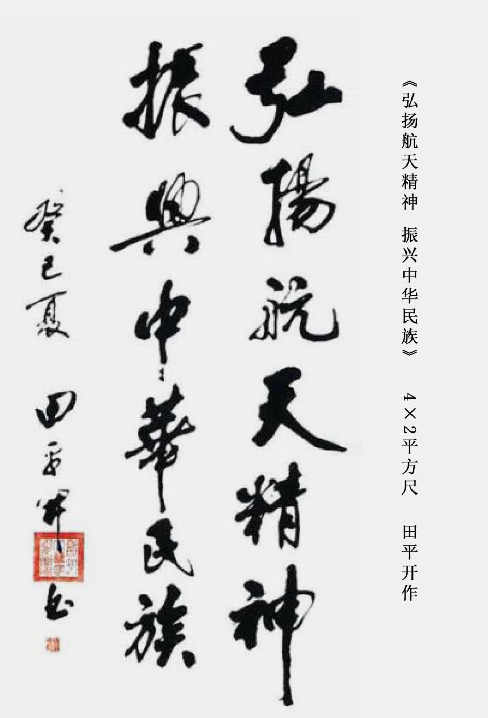 《弘扬航天精神 振兴中华民族》 4×2平方尺 田平开作
弘揚航天精神
振興中華民族
癸巳夏 田平开书